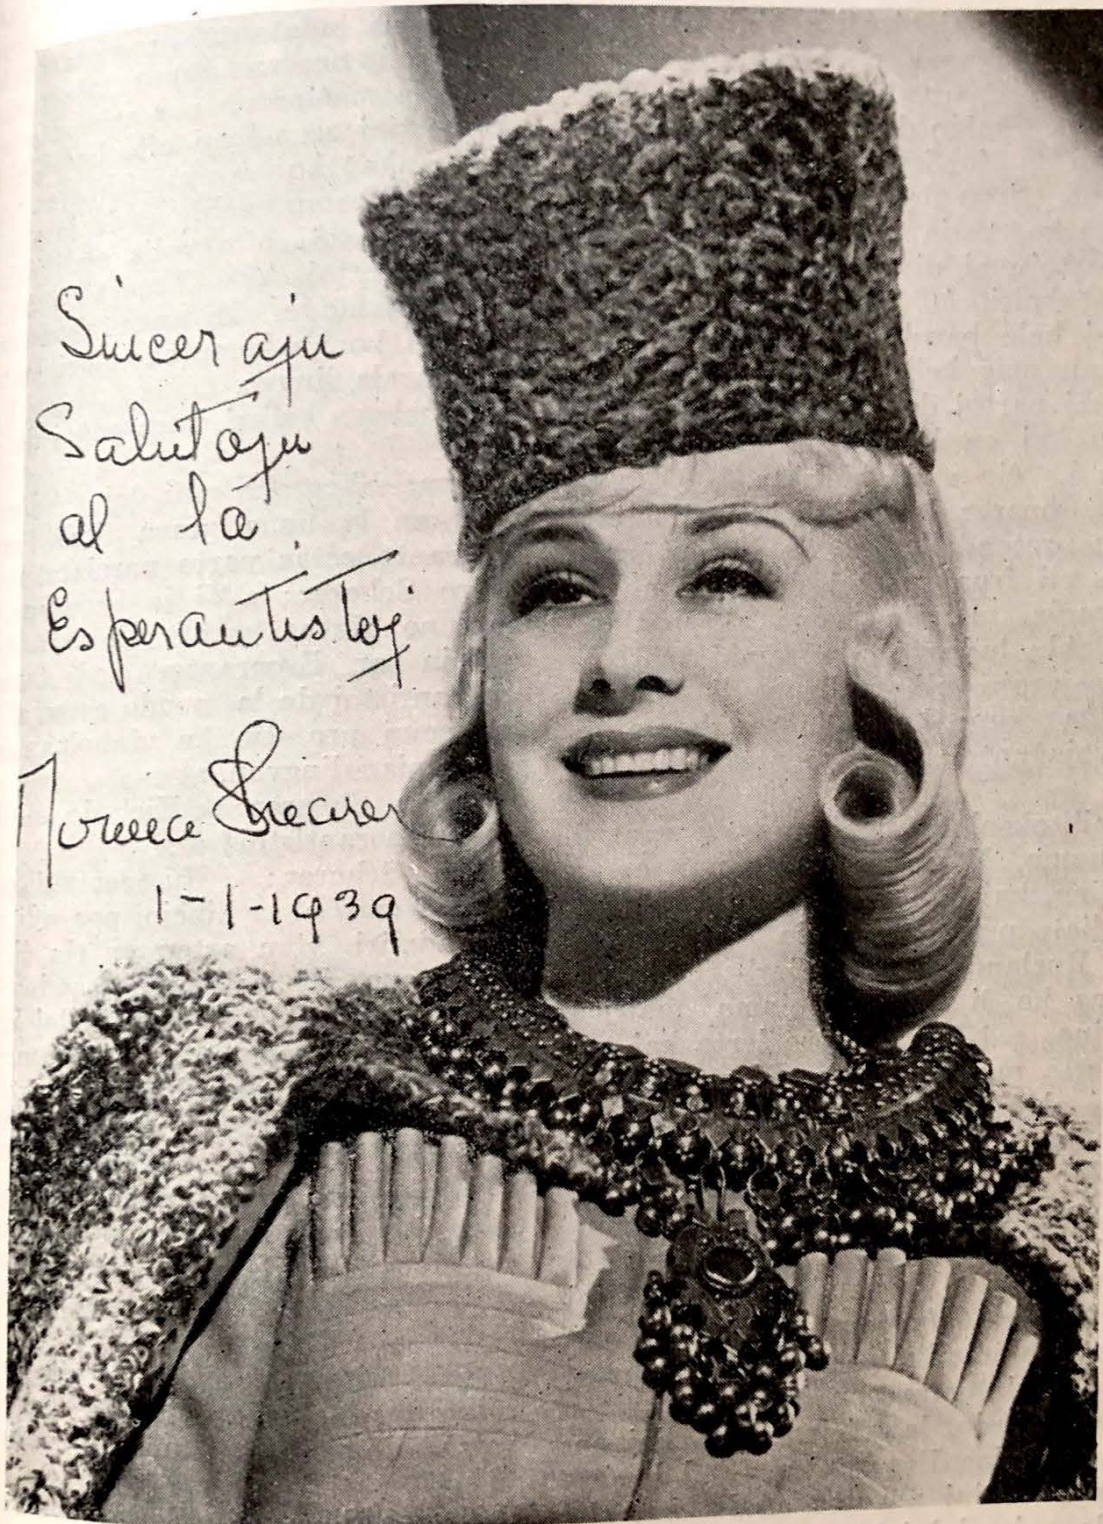 Sincerajn
Salutojn
al la
Esperantistoj
Norma Shearer
1-1-1939